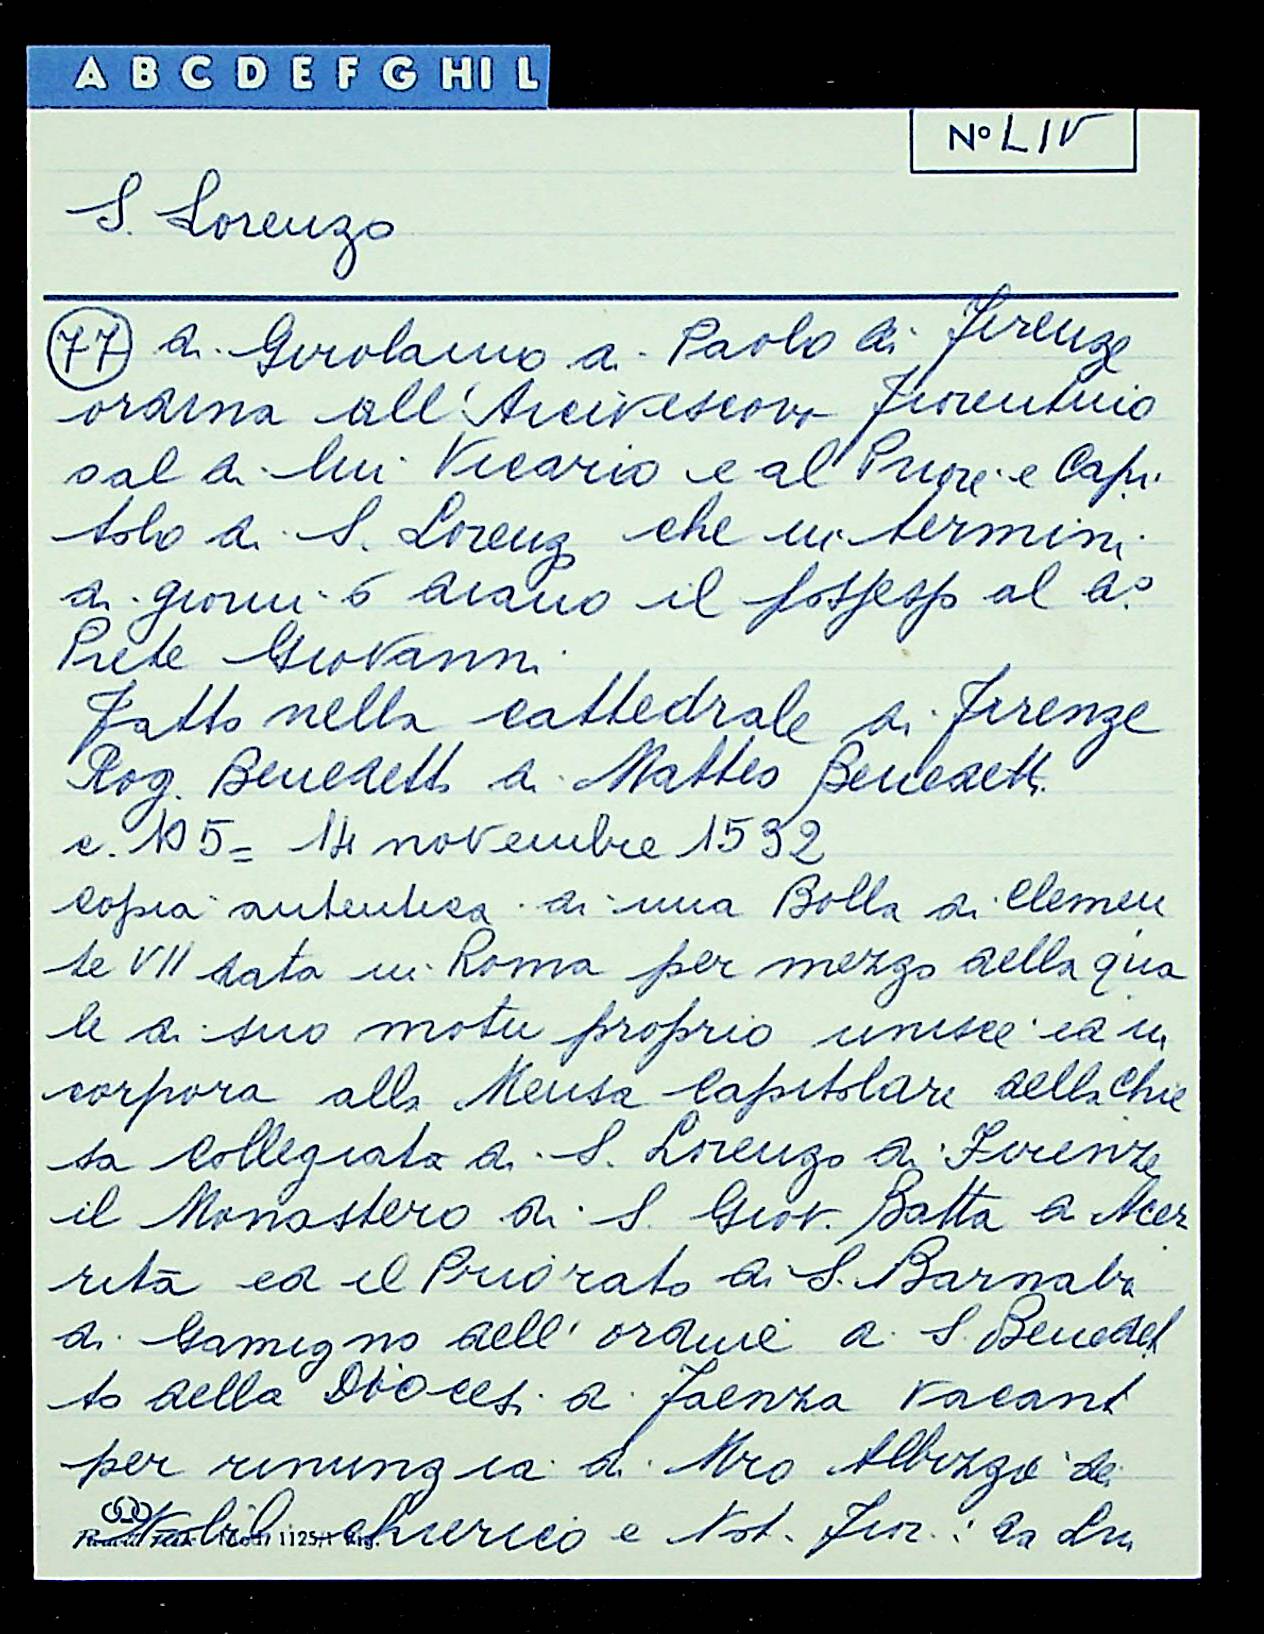 A B C D E F G HI L
No LIV
S. Lorenzo
77 di Girolamo di Paolo di Firenze
ordina all'Arcivescovo Fiorentino
o al di lui Vicario e al Priore e Capi
tolo di S. Lorenzo che in termini
di giorni 6 diano il possesso al do
Prete Giovanni
Fatto nella cattedrale di Firenze
Rog. Benedetto di Matteo Benedetti
c. 105= 14 novembre 1532
copia autentica di una Bolla di Clemen
te VII data in Roma per mezzo della qua
le di suo motu proprio unisce ed in
corpora alla Mensa Capitolare della Chie
sa Collegiata di S. Lorenzo di Firenze
il Monastero di S. Giov. Batta di Acer
reta ed il Priorato di S. Barnaba
di Gamogno dell'ordine di S. Benedet
to della Diocesi di Faenza vacant
per rinunzia di Mro Albizzo de
chierico e Not. Fior. : da Lui